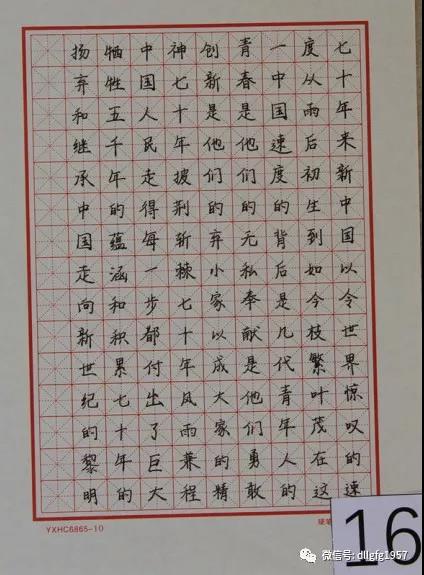 七十年来新中国以令世界惊叹的速
度从雨后初生到如今枝繁叶茂在这
一中国速度的背后是几代青年人的
青春是他们的无私奉献是他们勇敢
创新是他们的弃小家以成大家的精
神七十年披荆斩棘七十年风雨兼程
中国人民走得每一步都付出了巨大
牺牲五千年的蕴涵和积累七十年的
扬弃和继承中国走向新世纪的黎明
YXHC6865-10
硬笔
16
微信号: dllgfg1957